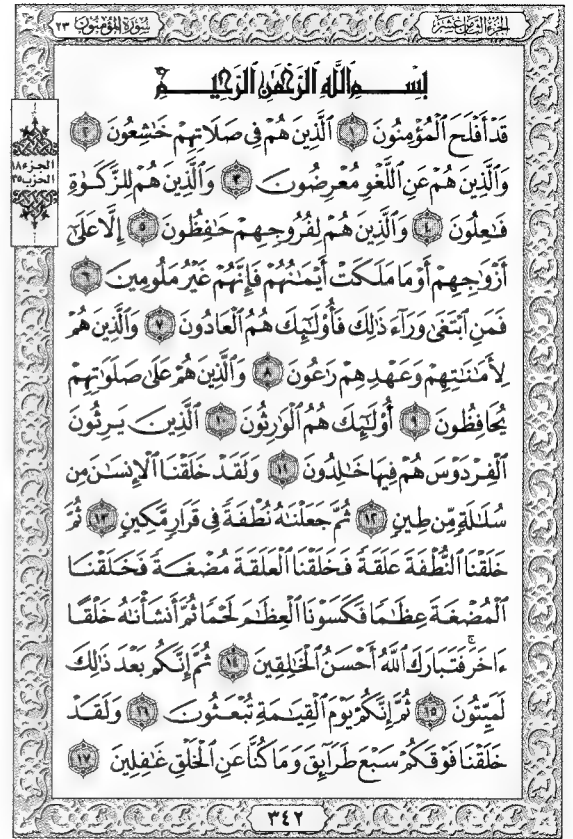 الجزء الثامن عشر
سورة المؤمنون ٢٣
بِسْمِ ٱللَّهِ ٱلرَّحْمَٰنِ ٱلرَّحِيمِ
قَدْ أَفْلَحَ ٱلْمُؤْمِنُونَ ١ ٱلَّذِينَ هُمْ فِى صَلَاتِهِمْ خَٰشِعُونَ ٢
الجزء ١٨
الحزب ٣٥
وَٱلَّذِينَ هُمْ عَنِ ٱللَّغْوِ مُعْرِضُونَ ٣ وَٱلَّذِينَ هُمْ لِلزَّكَوٰةِ
فَٰعِلُونَ ٤ وَٱلَّذِينَ هُمْ لِفُرُوجِهِمْ حَٰفِظُونَ ٥ إِلَّا عَلَىٰٓ
أَزْوَٰجِهِمْ أَوْ مَا مَلَكَتْ أَيْمَٰنُهُمْ فَإِنَّهُمْ غَيْرُ مَلُومِينَ ٦
فَمَنِ ٱبْتَغَىٰ وَرَآءَ ذَٰلِكَ فَأُو۟لَٰٓئِكَ هُمُ ٱلْعَادُونَ ٧ وَٱلَّذِينَ هُمْ
لِأَمَٰنَٰتِهِمْ وَعَهْدِهِمْ رَٰعُونَ ٨ وَٱلَّذِينَ هُمْ عَلَىٰ صَلَوَٰتِهِمْ
يُحَافِظُونَ ٩ أُو۟لَٰٓئِكَ هُمُ ٱلْوَٰرِثُونَ ١٠ ٱلَّذِينَ يَرِثُونَ
ٱلْفِرْدَوْسَ هُمْ فِيهَا خَٰلِدُونَ ١١ وَلَقَدْ خَلَقْنَا ٱلْإِنسَٰنَ مِن
سُلَٰلَةٍ مِّن طِينٍ ١٢ ثُمَّ جَعَلْنَٰهُ نُطْفَةً فِى قَرَارٍ مَّكِينٍ ١٣ ثُمَّ
خَلَقْنَا ٱلنُّطْفَةَ عَلَقَةً فَخَلَقْنَا ٱلْعَلَقَةَ مُضْغَةً فَخَلَقْنَا
ٱلْمُضْغَةَ عِظَٰمًا فَكَسَوْنَا ٱلْعِظَٰمَ لَحْمًا ثُمَّ أَنشَأْنَٰهُ خَلْقًا
ءَاخَرَ ۚ فَتَبَارَكَ ٱللَّهُ أَحْسَنُ ٱلْخَٰلِقِينَ ١٤ ثُمَّ إِنَّكُم بَعْدَ ذَٰلِكَ
لَمَيِّتُونَ ١٥ ثُمَّ إِنَّكُمْ يَوْمَ ٱلْقِيَٰمَةِ تُبْعَثُونَ ١٦ وَلَقَدْ
خَلَقْنَا فَوْقَكُمْ سَبْعَ طَرَآئِقَ وَمَا كُنَّا عَنِ ٱلْخَلْقِ غَٰفِلِينَ ١٧
٣٤٢